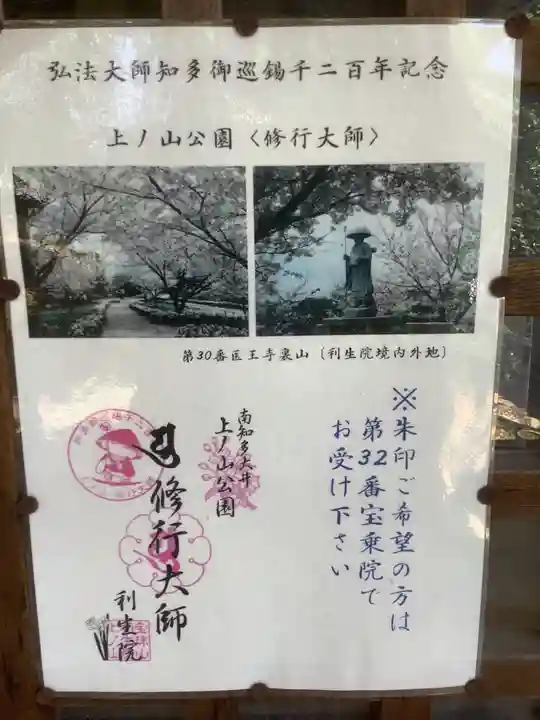 弘法大師知多御巡錫千二百年記念
上ノ山公園〈修行大師〉
第30番医王寺裏山〔利生院境内外地〕
※朱印ご希望の方は
第32番宝乗院で
お受け下さい
南知多大井
上ノ山公園
修行大師
利生院